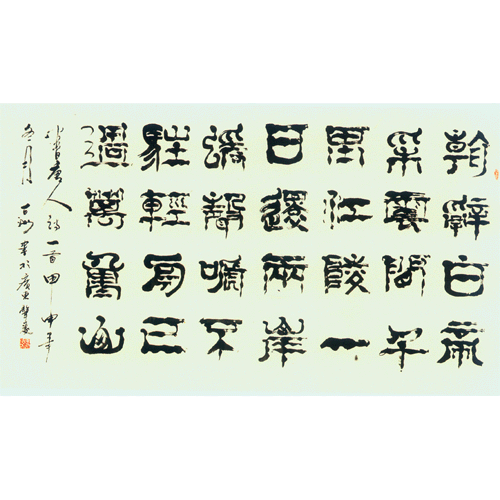 朝辭白帝
采雲間千
里江陵一
日還兩岸
猨聲啼不
駐輕舟已
過萬重山
書唐人詩一首甲申年
冬月 於廣東肇慶